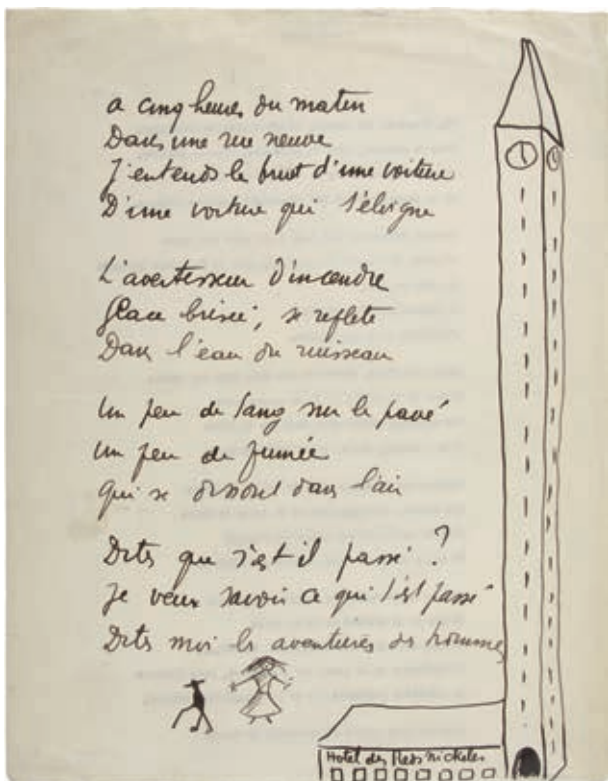 a cinq heures du matin
Dans une rue neuve
J'entends le bruit d'une voiture
D'une voiture qui s'éloigne
L'avertisseur d'incendie
glace brisée, se reflete
Dans l'eau du ruisseau
Un peu de sang sur le pavé
Un peu de fumée
qui se dissout dans l'air
Dites que s'est il passé ?
Je veux savoir ce qui s'est passé
Dites moi les aventures des hommes
Hotel des Pieds nickelés